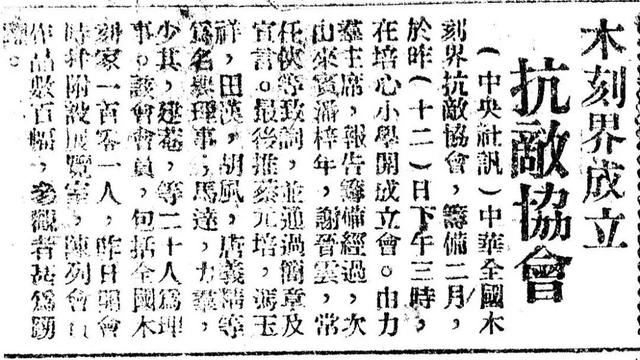 木刻界成立
抗敵協會
（中央社訊）中華全國木
刻界抗敵協會，籌備二月，
於昨（十二）日下午三時，
在培心小學開成立會。由力
羣主席，報告籌備經過，次
由來賓潘梓年，謝晉雲，常
任俠等致詞，並通過簡章及
宣言。最後推蔡元培，馮玉
祥，田漢，胡風，唐義精等
爲名譽理事，馬達，力羣，
少其，建菴，等二十人爲理
事。該會會員，包括全國木
刻家一百零一人，昨日開會
時幷附設展覽室，陳列會員
作品數百幅，參觀者甚爲踴
。